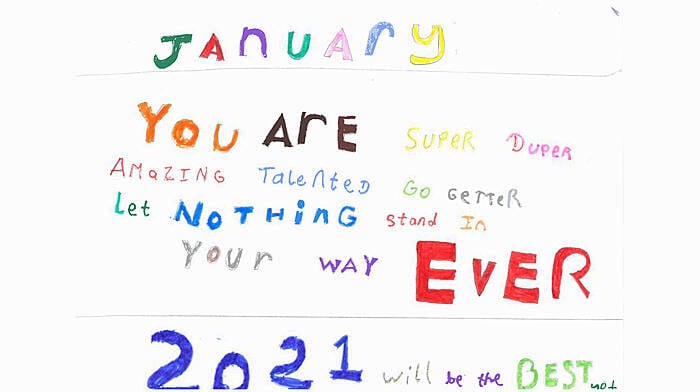 JANUAry
YOU ArE SUPER DUPER
AMaZING TaleNteD GO GETTER
Let NOTHING stand In
YOUr WAY EVER
2021 will be the BEST not